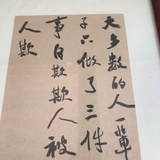 大多数的人一辈
子只做了三件
事自欺欺人被
人欺